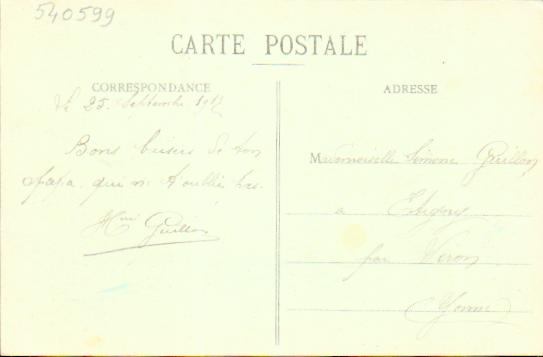 540599
CARTE POSTALE
CORRESPONDANCE
le 25 Septembre 191
Bons baisers de ton
papa qui ne t'oublie pas.
Guillon
ADRESSE
Mademoiselle Simone Guillon
a Etigny
par Véron
Yonne